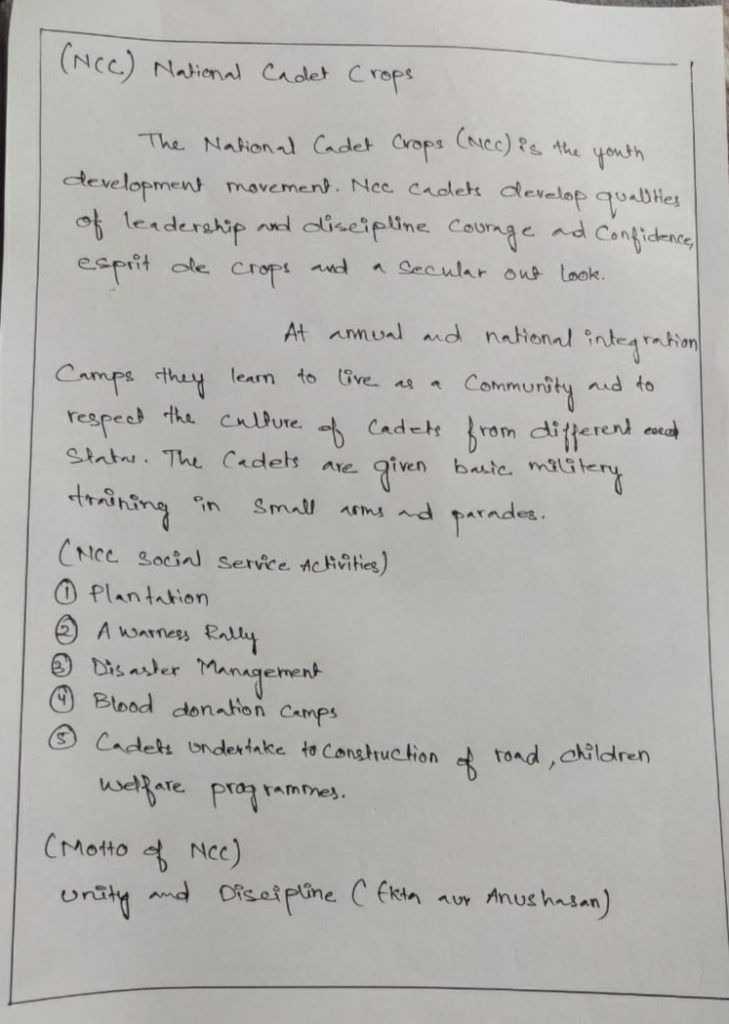 (NCC) National Cadet Crops
The National Cadet Crops (NCC) is the youth
development movement. Ncc cadets develop qualities
of leadership and discipline Courage ad Confidence,
esprit de crops and a Secular out look.
At annual and national integration
Camps they learn to live as a Community and to
respect the culture of Cadets from different
States. The Cadets are given basic militery
training in Small arms and parades.
(NCC Social Service Activities)
① Plantation
② Awarness Rally
③ Disaster Management
④ Blood donation Camps
⑤ Cadets undertake to Construction of road, children
welfare programmes.
(Motto of NCC)
unity and Discipline (Ekta aur Anushasan)